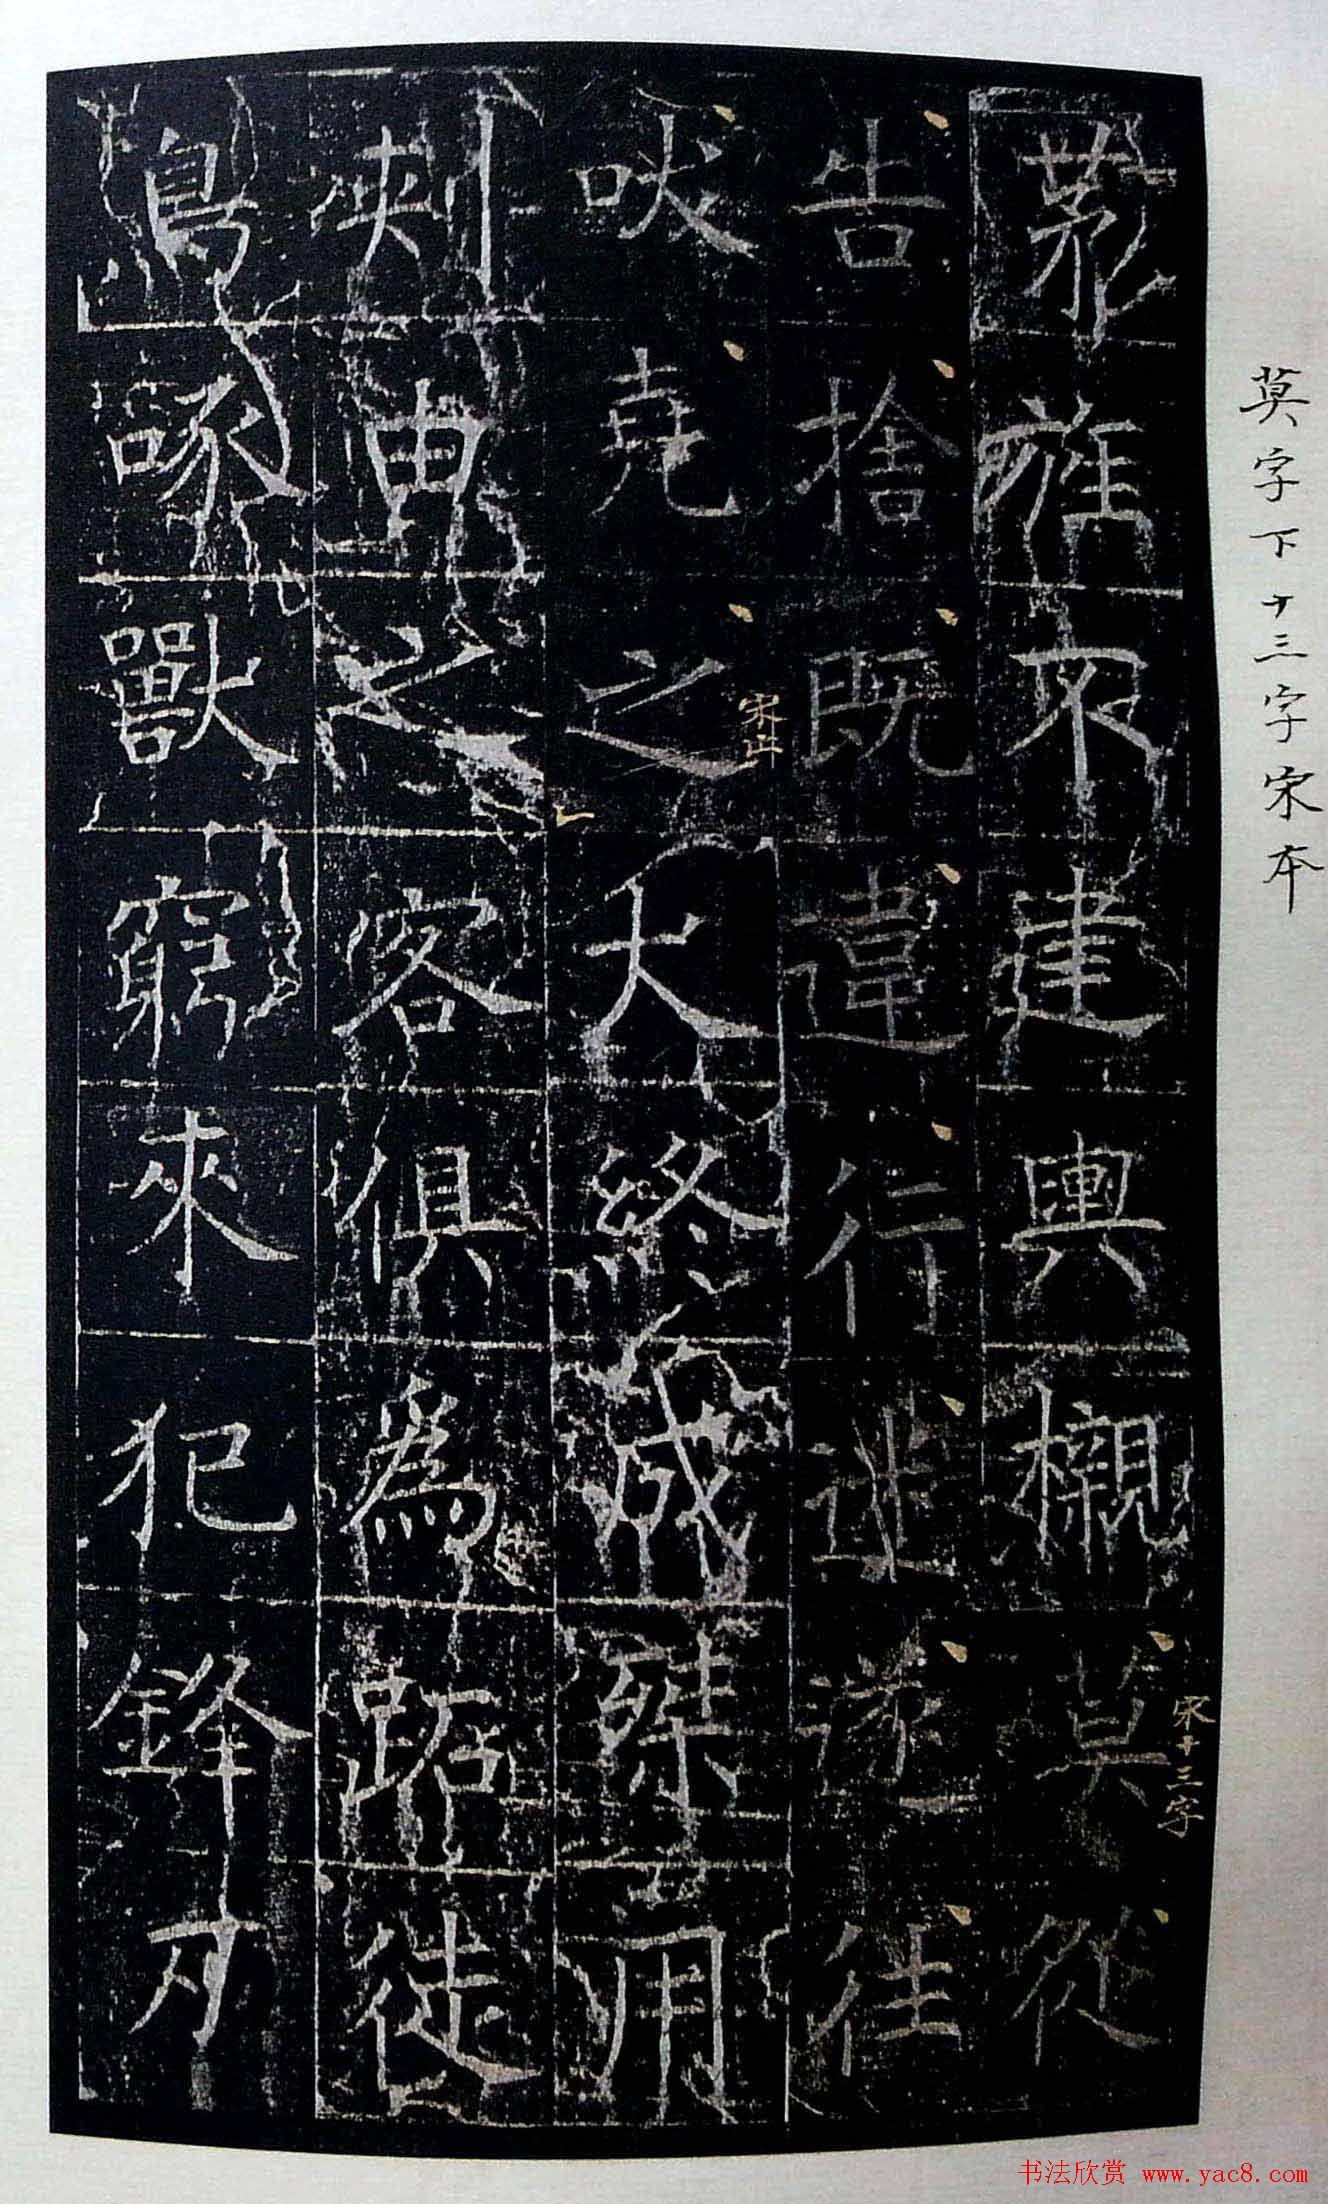 莫字下十三字宋本
旌不建輿櫬莫從
宋十三字
告捨既違行迷遂往
吠堯之犬終成桀用
宋止
刺曳之客俱為跖徒
鳥啄獸窮來犯鋒刃
书法欣赏 www.yac8.com